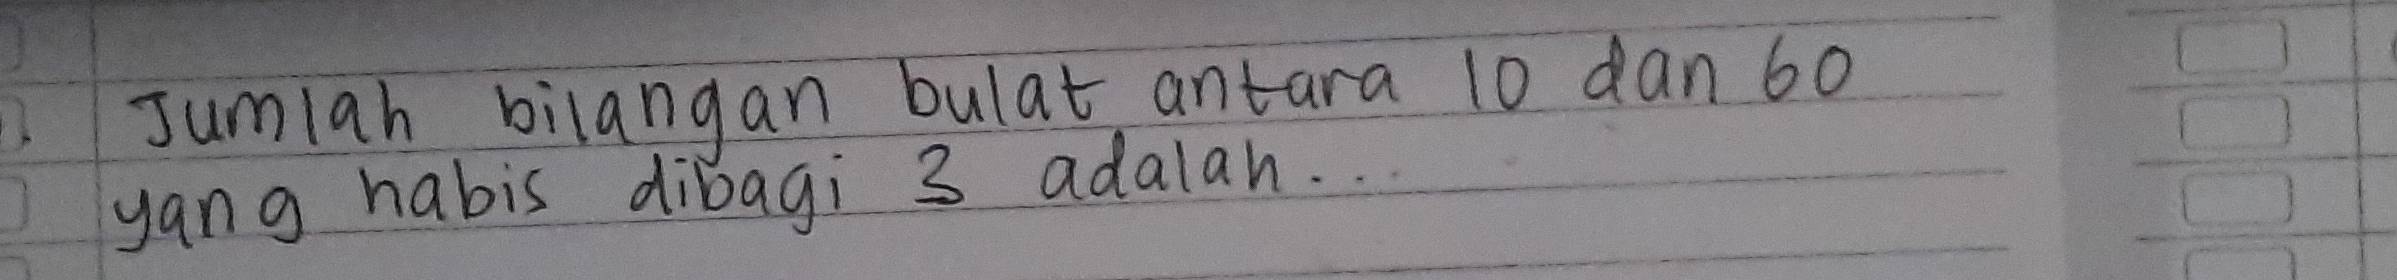 1. Jumlah bilangan bulat antara 10 dan 60
yang habis dibagi 3 adalah...